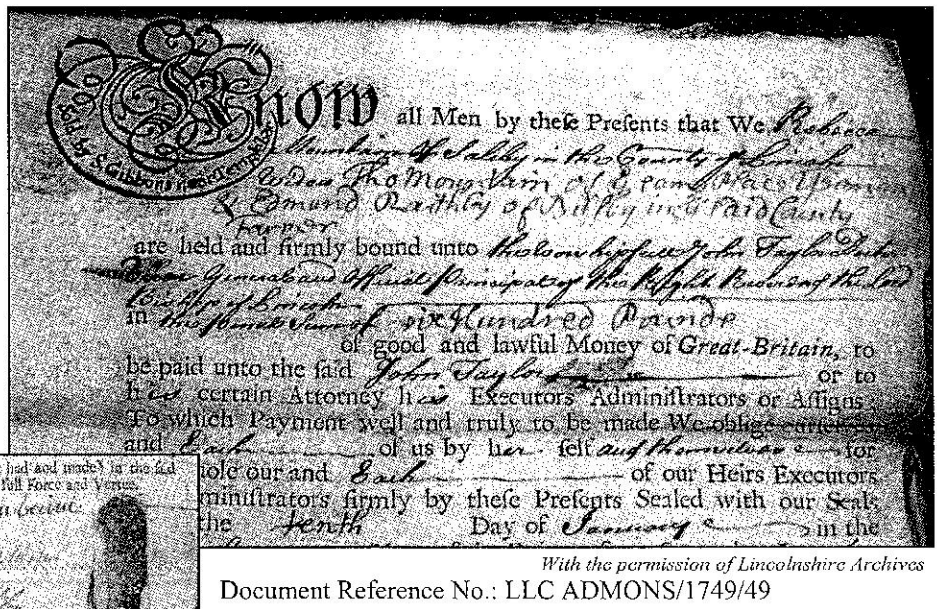 Know all Men by theſe Preſents that We Rebecca
Mountain of Saltby in the County of Lincoln
Widow Tho Mountain of ye same Place Yeoman
& Edmund of in ye said County
Farmer
are held and firmly bound unto the Worshipfull John Taylor
General and Official Principal of the Right Reverend the Lord
Bishop of Lincoln
in the Penal Sum of six Hundred Pounds
of good and lawful Money of Great-Britain, to
be paid unto the ſaid John Taylor or to
his certain Attorney his Executors Adminiſtrators or Aſſigns
To which Payment well and truly to be made We oblige
and Each of us by her ſelf and themselves for
hole our and Each of our Heirs Executors
miniſtrators firmly by theſe Preſents Sealed with our Seals
the tenth Day of January in the
Sold by S. Gibbons
had and made) in the ſaid
full Force and Vertue.
With the permission of Lincolnshire Archives
Document Reference No.: LLC ADMONS/1749/49